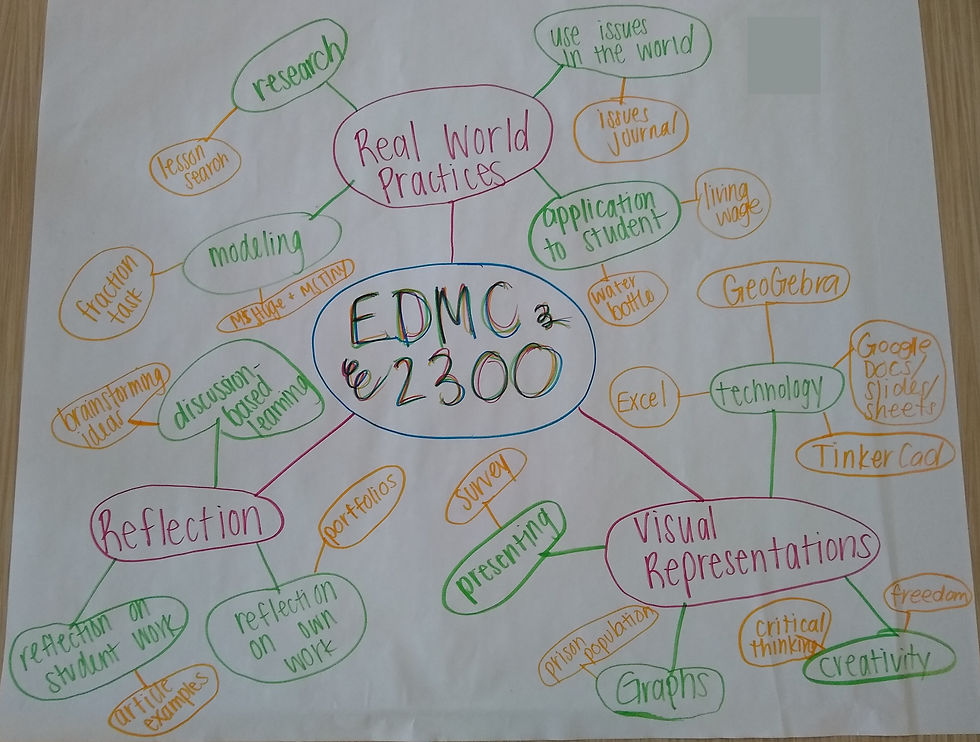 research
use issues
in the world
lesson
search
issues
journal
Real World
Practices
application
to student
living
wage
modeling
fraction
task
Ms Huge + Ms Tiny
water
bottle
EDMC
2300
GeoGebra
Google
Docs/
Slides/
sheets
technology
Excel
TinkerCad
brainstorming
ideas
discussion-
based
learning
Reflection
portfolios
survey
presenting
Visual
Representations
reflection on
student work
article
examples
reflection
on own
work
prison
population
Graphs
critical
thinking
freedom
creativity